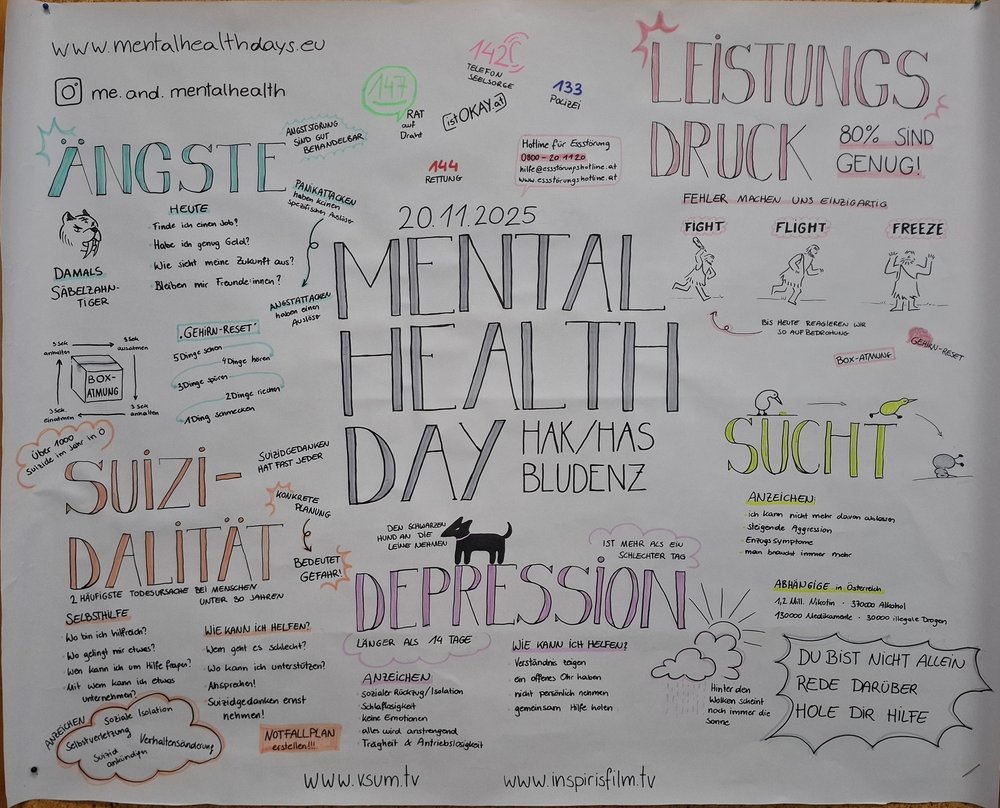 www.mentalhealthdays.eu
me.and.mentalhealth
147
RAT
auf
Draht
142
TELEFON
SEELSORGE
istOKAY.at
133
POLIZEI
144
RETTUNG
Hotline für Essstörung
0800-20 11 20
hilfe@essstörungshotline.at
www.essstörungshotline.at
LEISTUNGS
DRUCK
80% SIND
GENUG!
FEHLER MACHEN UNS EINZIGARTIG
FIGHT
FLIGHT
FREEZE
BIS HEUTE REAGIEREN WIR
SO AUF BEDROHUNG
BOX-ATMUNG
GEHIRN-RESET
ÄNGSTE
ANGSTSTÖRUNG
SIND GUT
BEHANDELBAR
PANIKATTACKEN
haben keinen
spezifischen Auslöser
ANGSTATTACKEN
haben einen
Auslöser
DAMALS
SÄBELZAHN-
TIGER
HEUTE
· Finde ich einen Job?
· Habe ich genug Geld?
· Wie sieht meine Zukunft aus?
· Bleiben mir Freunde:innen?
"GEHIRN-RESET"
5 Dinge sehen
4 Dinge hören
3 Dinge spüren
2 Dinge riechen
1 Ding schmecken
5 Sek.
anhalten
5 Sek.
ausatmen
BOX-
ATMUNG
5 Sek.
einatmen
5 Sek.
anhalten
20.11.2025
MENTAL
HEALTH
DAY
HAK/HAS
BLUDENZ
SUCHT
ANZEICHEN:
· ich kann nicht mehr davon ablassen
· steigende Aggression
· Enzugssymptome
· man braucht immer mehr
ABHÄNGIGE in Österreich
1,2 Mill. Nikotin · 37000 Alkohol
130000 Medikamente · 30000 illegale Drogen
DU BIST NICHT ALLEIN
REDE DARÜBER
HOLE DIR HILFE
Über 1000
Suizide im Jahr in Ö
SUIZI-
DALITÄT
SUIZIDGEDANKEN
HAT FAST JEDER
KONKRETE
PLANUNG
BEDEUTET
GEFAHR!
2 HÄUFIGSTE TODESURSACHE BEI MENSCHEN
UNTER 30 JAHREN
SELBSTHILFE
· Wo bin ich hilfreich?
· Wo gelingt mir etwas?
· Wen kann ich um Hilfe fragen?
· Mit wem kann ich etwas
unternehmen?
WIE KANN ICH HELFEN?
· Wem geht es schlecht?
· Wo kann ich unterstützen?
· Ansprechen!
· Suizidgedanken ernst
nehmen!
ANZEICHEN
Soziale Isolation
Selbstverletzung
Verhaltensänderung
Suizid
ankündigen
NOTFALLPLAN
erstellen!!!
DEN SCHWARZEN
HUND AN DIE
LEINE NEHMEN
IST MEHR ALS EIN
SCHLECHTER TAG
DEPRESSION
LÄNGER ALS 14 TAGE
ANZEICHEN
· sozialer Rückzug/Isolation
· Schlaflosigkeit
· keine Emotionen
· alles wird anstrengend
· Trägheit & Antriebslosigkeit
WIE KANN ICH HELFEN?
· Verständnis zeigen
· ein offenes Ohr haben
· nicht persönlich nehmen
· gemeinsam Hilfe holen
Hinter den
Wolken scheint
noch immer die
Sonne
www.vsum.tv
www.inspirisfilm.tv